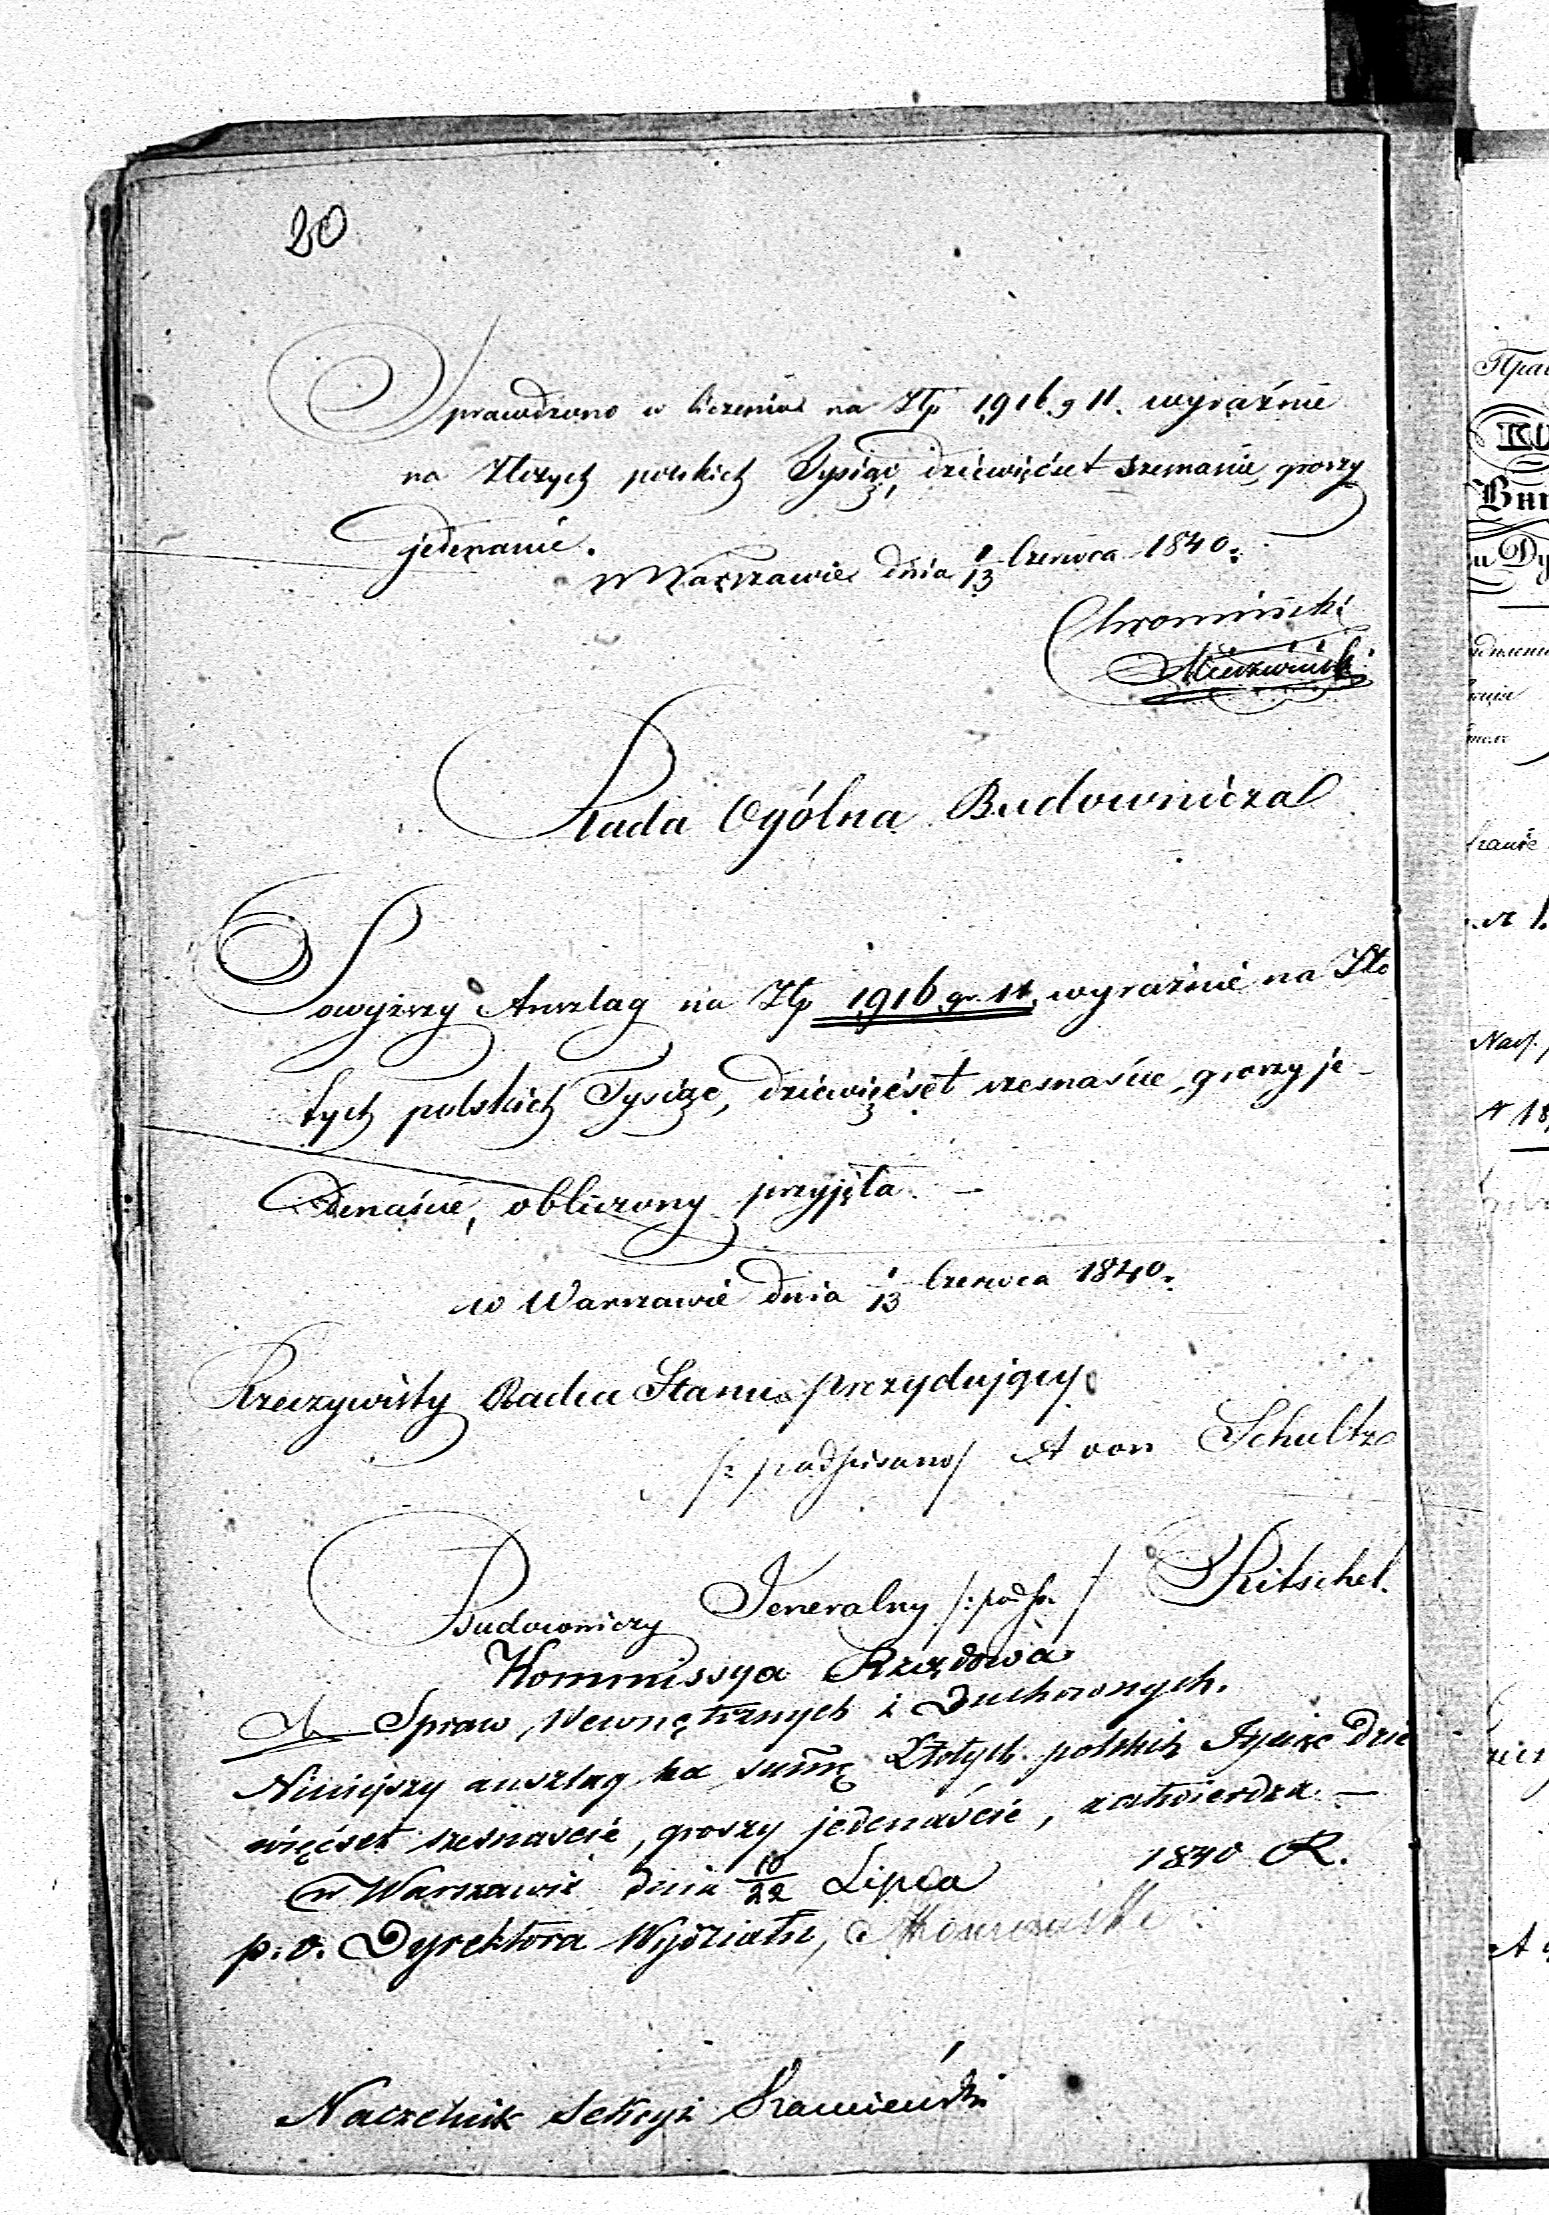 20
Sprawdzono w liczeniu na Złp 1,916 g 11. wyraźnie
na Złotych polskich Tysiąc, dziewięćset szesnaście, groszy
jedenaście.
w Warszawie dnia 1/13 Czerwca 1840.
Chromiński
Rada Ogólna Budownicza
Powyższy Anszlag na Złp 1,916 gr. 11, wyraźnie na Zło
tych polskich Tysiąc, dziewięćset szesnaście, groszy je-
denaście, obliczony przyjęła. —
w Warszawie dnia 1/13 Czerwca 1840.
Rzeczywisty Radca Stanu prezydujący
/: podpisano / A von Schultz
Budowniczy Jeneralny /: podp. / Ritschel.
Kommissya Rządowa
Spraw Wewnętrznych i Duchownych.
Niniejszy anszlag na summę Złotych polskich Tysiąc Dzie
więćset szesnaście, groszy jedenaście, zatwierdza —
w Warszawie dnia 10/22 Lipca 1840 R.
p. o. Dyrektora Wydziału,
Naczelnik Sekcyi
KO